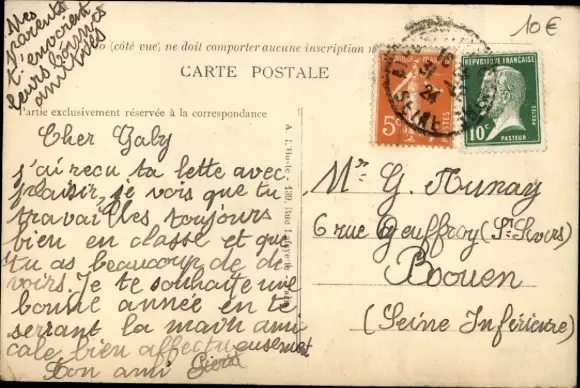 Mes
parents
t'envoient
leurs bonnes
amitiés
10€
(côté vue) ne doit comporter aucune inscription
CARTE POSTALE
Partie exclusivement réservée à la correspondance
5c
RÉPUBLIQUE FRANÇAISE
POSTES
10c
PASTEUR
31
24
SEINE
Cher Gaby
j'ai reçu ta lette avec
plaisir, je vois que tu
travailles toujours
bien en classe et que
tu as beaucoup de de
voirs. Je te souhaite une
bonne année en te
serrant la main ami
cale bien affectueusement
Ton ami
A. L'Hoste - 139, Rue Lafayette - Paris
Mr G.
6 rue Geuffroy (St Severs)
Roouen
(Seine Inférieure)